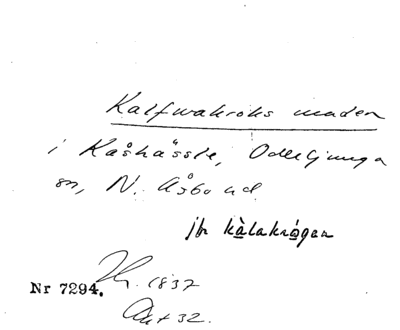 Kalfwakroks maden
i Kåshässle, Oderljunga
sn, N. Åsbo hd.
jfr kàlakrógen
Nr 7294.
1837
Akt 32.